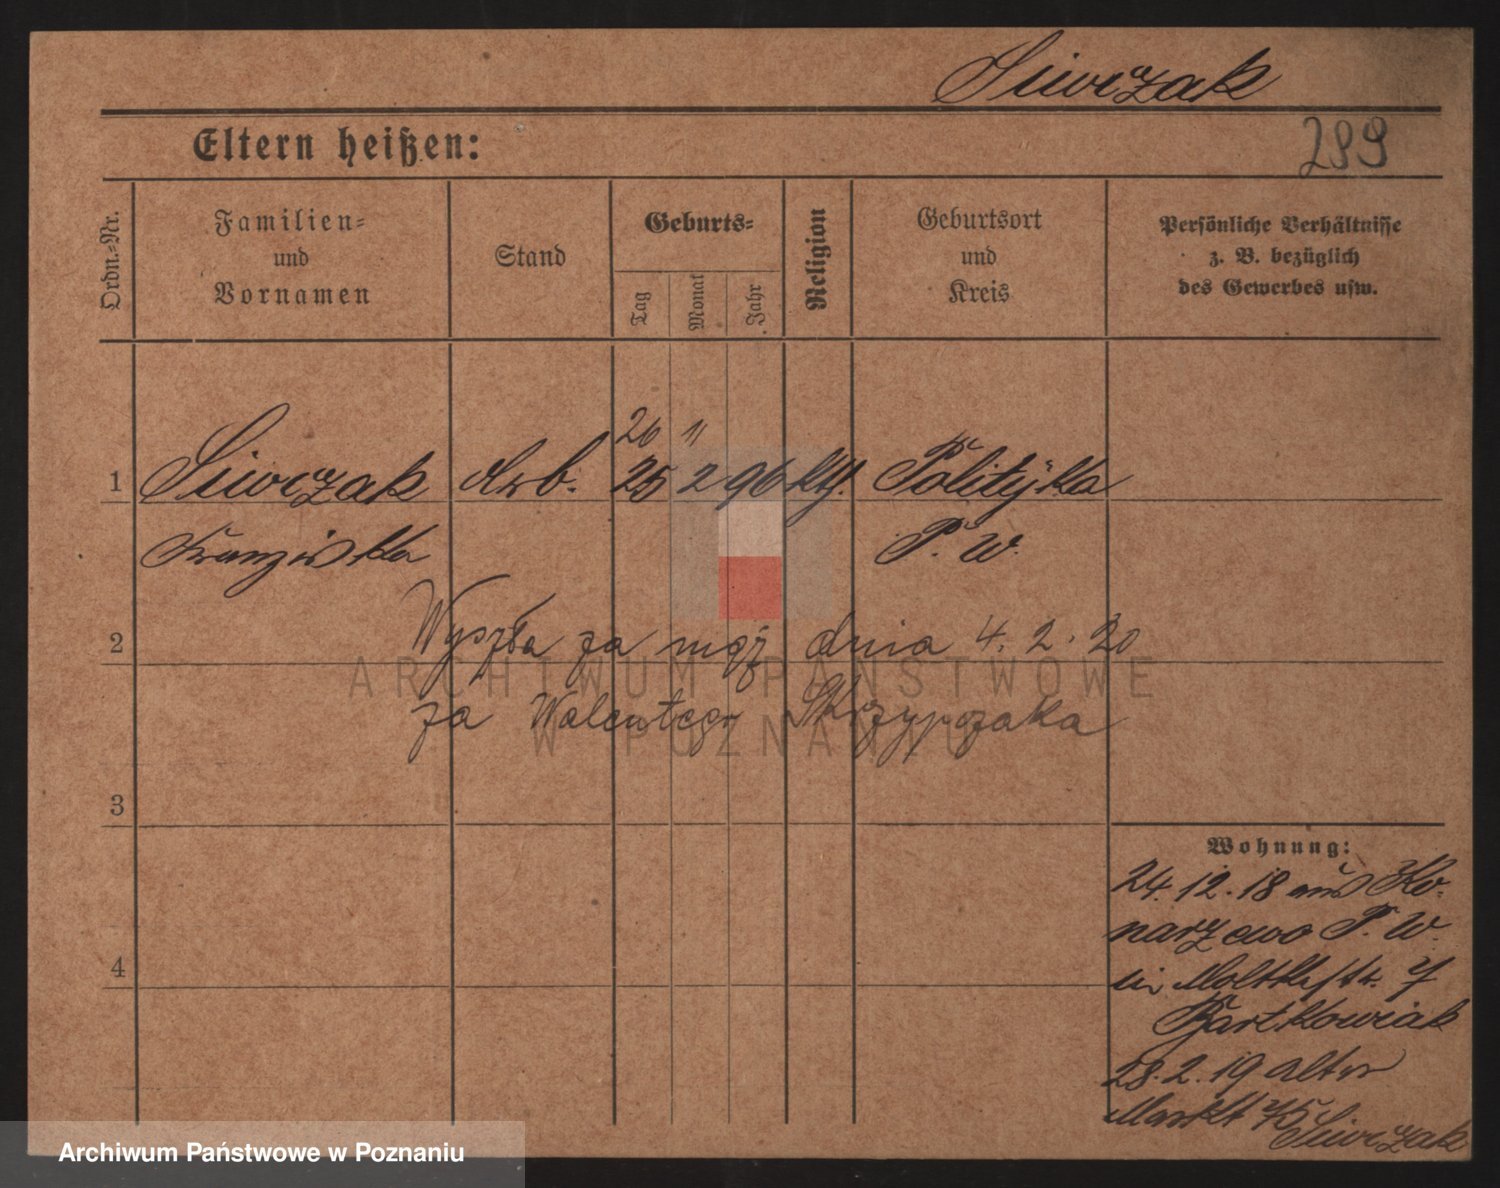 Siwczak
Eltern heißen:
299
Ordn.-Nr.
Familien-
und
Vornamen
Stand
Geburts-
Tag
Monat
Jahr
Religion
Geburtsort
und
Kreis
Persönliche Verhältnisse
z. B. bezüglich
des Gewerbes usw.
26 11
1 Siwczak Arb. 25 2 96 kth. Polityka
Franziska P. W.
Wyszła za mąż dnia 4. 2. 20
2
ARCHIWUM PAŃSTWOWE
za Walentego Skrzypczaka
W POZNANIU
3
Wohnung:
24.12.18 aus Ko-
narzewo P. W.
4
in Moltkestr. 7
Bartkowiak
28.2.19 Alter
Markt 75
Siwczak
Archiwum Państwowe w Poznaniu